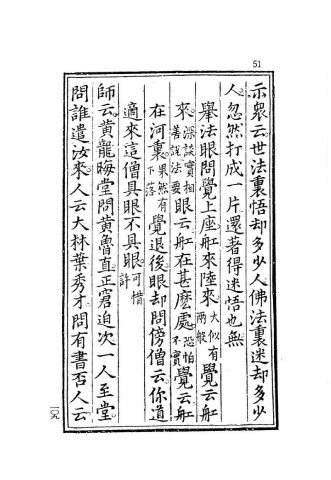 51
示衆云世法裏悟却多少人佛法裏迷却多少
人忽然打成一片還著得迷悟也無
舉法眼問覺上座舡來陸來大似有兩般覺云舡
來深談實相善說法要眼云舡在甚麽處恐怕不實覺云舡
在河裏果然有下落覺退後眼却問傍僧云你道
適來這僧具眼不具眼可惜許
師云黃龍晦堂問黃魯直正窘迫次一人至堂
問誰遣汝來人云大林葉秀才問有書否人云
一〇九